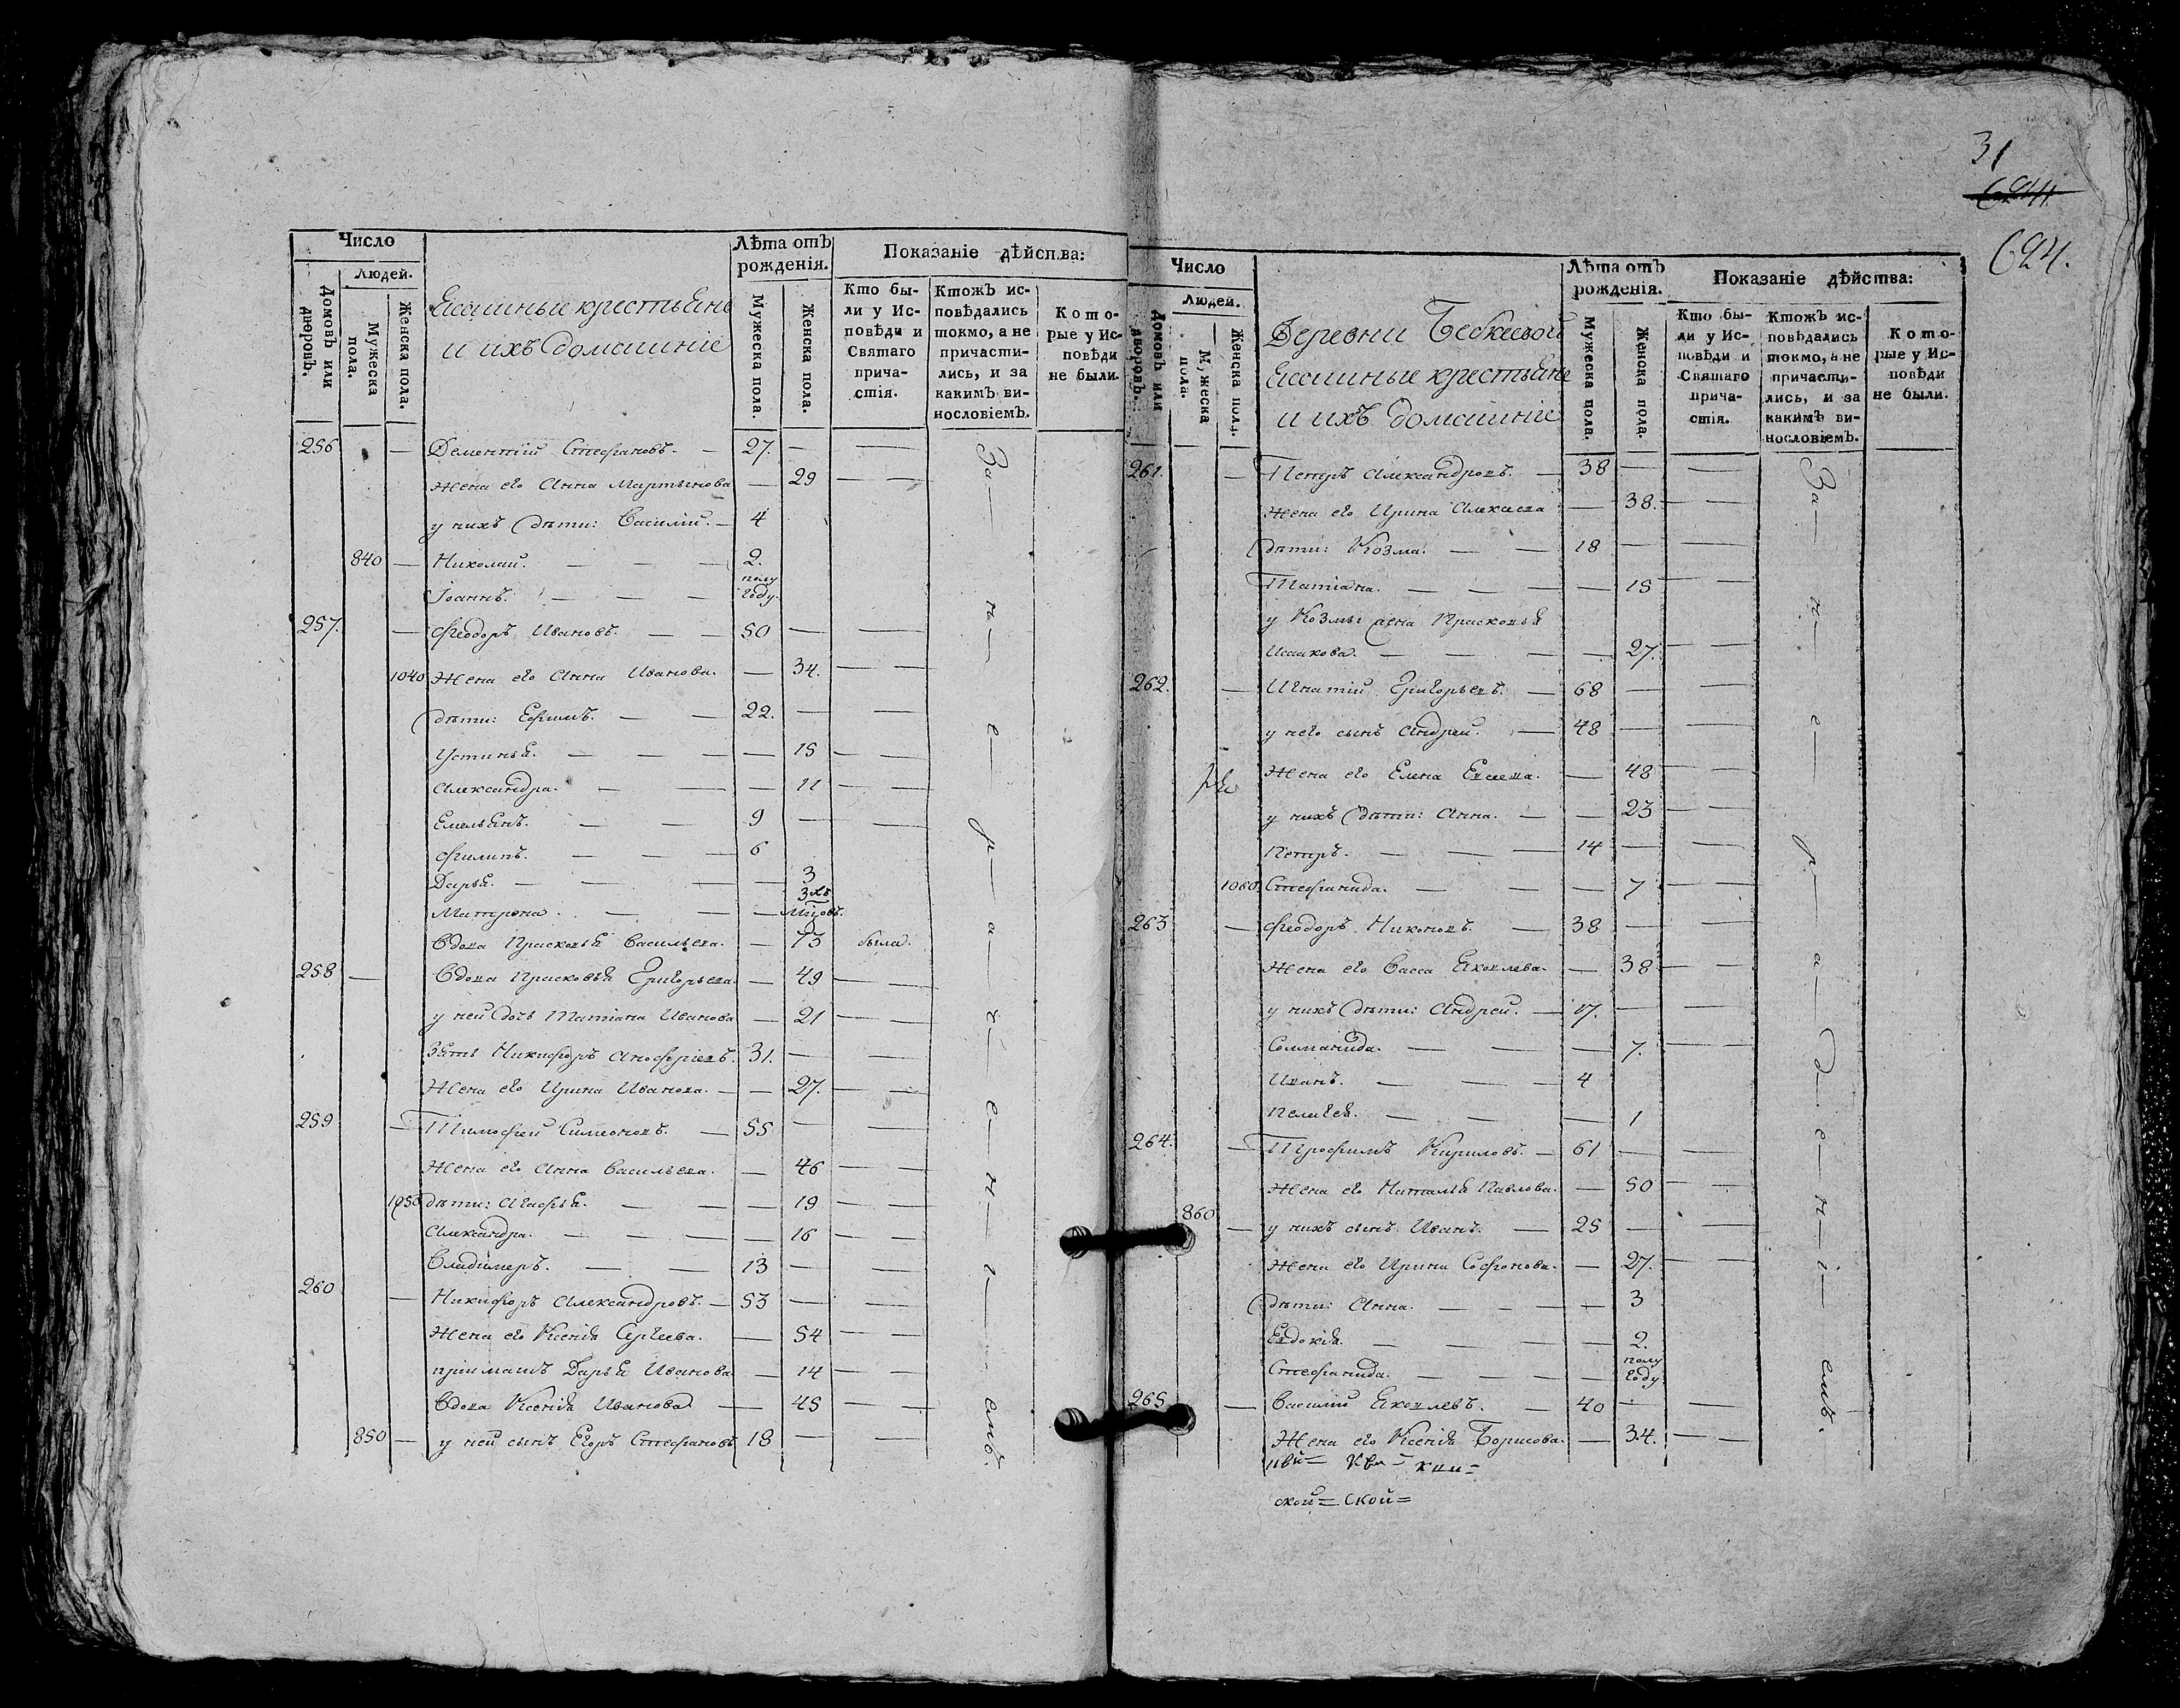 Число
Людей.
Домовъ или дворовъ.
Мужеска пола.
Женска пола.
Ясашные крестьяне
и ихъ домашніе
Лѣта отъ рожденія.
Мужеска пола.
Женска пола.
Показаніе дѣйства:
Кто были у Исповѣди и Святаго причастія.
Ктожъ исповѣдались токмо, а не причастились, и за какимъ винословіемъ.
Которые у Исповѣди не были.
256 — Дементій Стефановъ. — 27. —
Жена его Анна Мартынова — 29
у нихъ дѣти: Василій. — 4
840 — Николай. — 2.
Іоаннъ. — полу году.
257. — Феодоръ Ивановъ. — 50 —
1040 Жена его Анна Иванова. — 34.
дѣти: Ефимъ. — 22. —
Устинья. — 15
Александра. — 11
Емельянъ. — 9 —
Филипъ. — 6
Дарья. — 3
Матрона. — 3хъ мцовъ.
Вдова Прасковья Васильева. — 73 была.
258 — Вдова Прасковья Григорьева. — 49
у ней дочь Татіана Иванова — 21
Зять Никифоръ Аноѳріевъ. 31. —
Жена его Ирина Иванова. — 27.
259 — Тимофей Симеоновъ. — 55 —
Жена его Анна Васильева. — 46
1050 дѣти: Агафья. — 19
Александра. — 16
Владимеръ. — 13 —
260 — Никифоръ Александровъ. — 53 —
Жена его Ксенія Сергеева. — 54
пріимашъ Дарья Иванова — 14
Вдова Ксенія Иванова — 45
850 — у ней сынъ Егоръ Стефановъ 18 —
За — н — е — р — а — ч — е — н — і — емъ.
31
624.
624.
Число
Людей.
Домовъ или дворовъ.
Мужеска пола.
Женска пола.
Деревни Бебкеевой
Ясашные крестьяне
и ихъ домашніе
Лѣта отъ рожденія.
Мужеска пола.
Женска пола.
Показаніе дѣйства:
Кто были у Исповѣди и Святаго причастія.
Ктожъ исповѣдались токмо, а не причастились, и за какимъ винословіемъ.
Которые у Исповѣди не были.
261. — Петръ Александровъ. — 38 —
Жена его Ирина Алекиева — 38.
дѣти: Козма. — 18 —
Татіана. — 15
у Козмы жена Прасковья
Исакова. — 27.
262. — Игнатій Григорьевъ. — 68 —
у него сынъ Андрей. — 48 —
Жена его Елена Евсеева. — 48
у нихъ дѣти: Анна. — 23
Петръ. — 14 —
1060. Стефанида. — 7
263 — Феодоръ Никоновъ. — 38 —
Жена его Васса Яковлева. — 38
у нихъ дѣти: Андрей. — 17. —
Соломанида. — 7.
Иванъ. — 4
Пелагея. — 1
264. — Трофимъ Кириловъ. — 61 —
Жена его Наталья Павлова. — 50
860 — у нихъ сынъ Иванъ. — 25 —
Жена его Ирина Софонова. — 27.
дѣти: Анна. — 3
Евдокія. — 2.
Стефанида. — полу году
265 — Василій Яковлевъ. — 40 —
Жена его Ксенія Борисова. — 34.
За — н — е — р — а — д — е — н — і — емъ.
ской = ской =